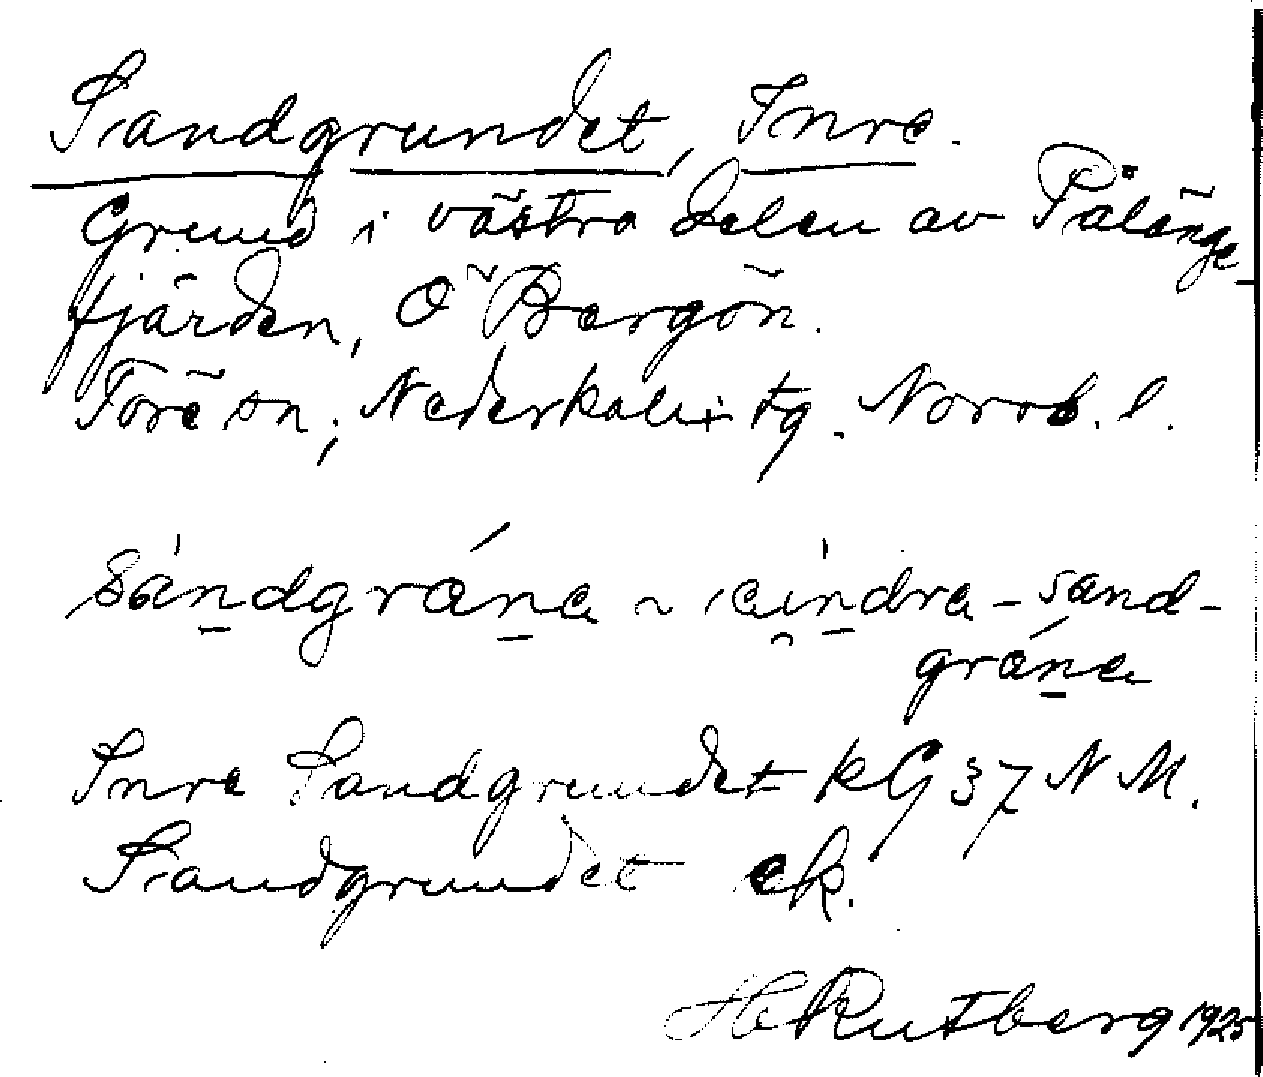 Sandgrundet, Inre.
Grund i västra delen av Pålänge-
fjärden, O Bergön.
Töre sn, Nederkalix tg. Norrb. l.
sandgrána ~ indra-sand-
grána
Inre Sandgrundet kG 37 N M.
Sandgrundet ek.
H Rutberg 1925